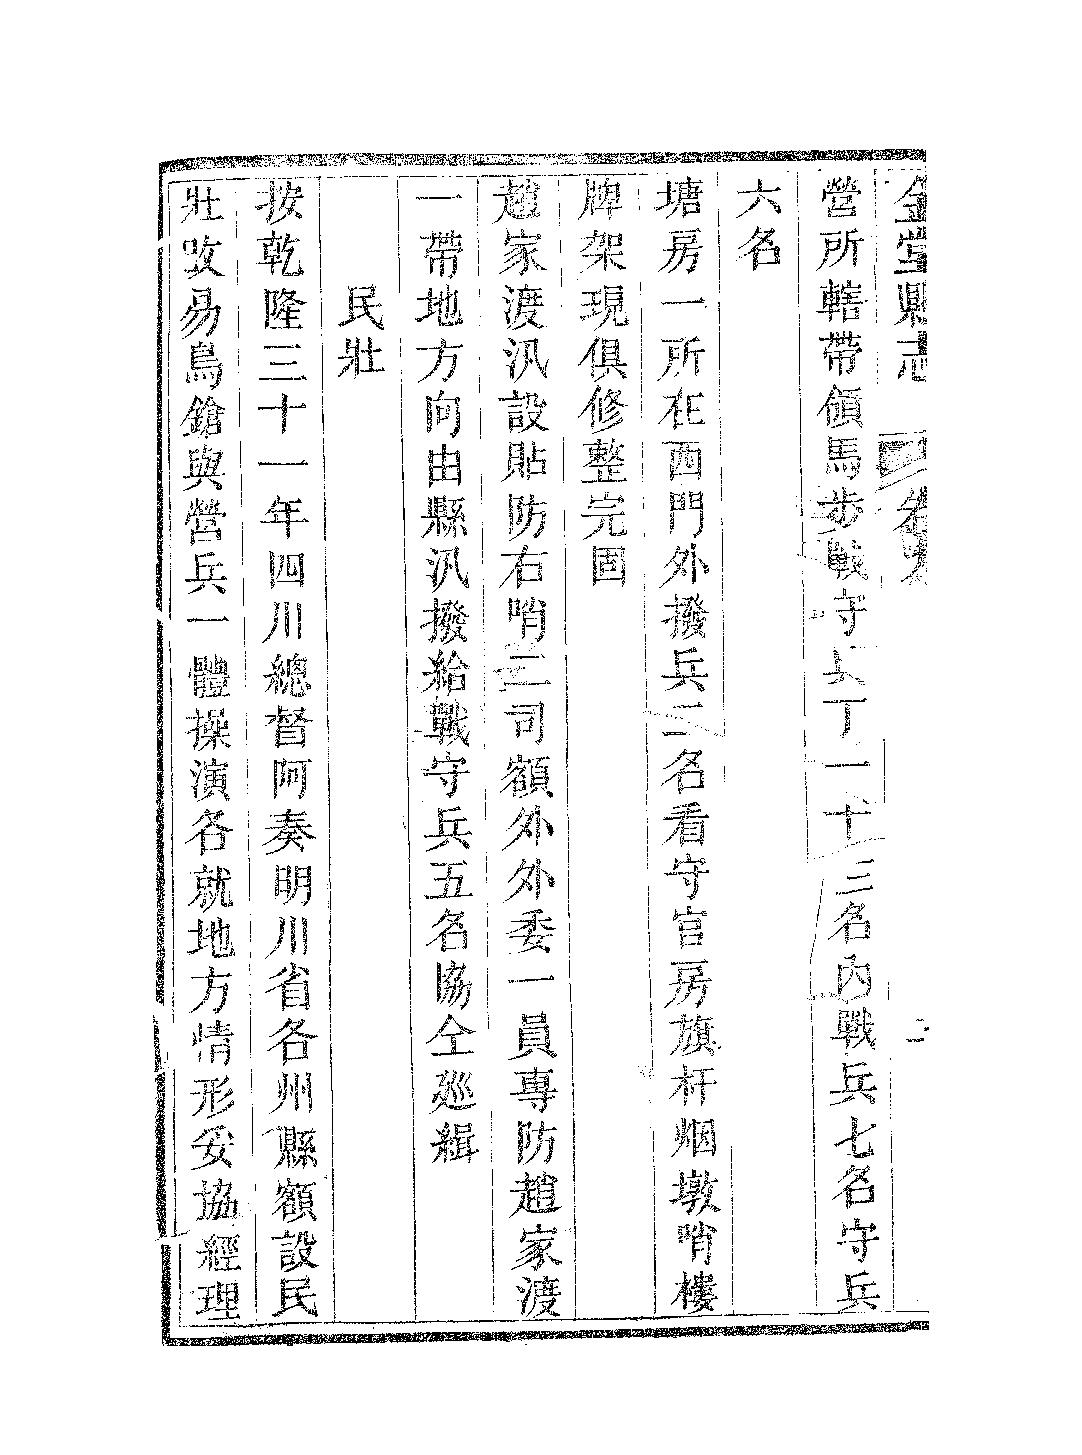 金堂縣志 卷 二
營所轄帶領馬步戰守兵丁一十三名內戰兵七名守兵
六名
塘房一所在西門外撥兵二名看守官房旗杆烟墩哨樓
牌架現俱修整完固
趙家渡汛設貼防右哨二司額外外委一員專防趙家渡
一帶地方向由縣汛撥給戰守兵五名協仝廵緝
民壯
按乾隆三十一年四川總督阿奏明川省各州縣額設民
壯改易鳥鎗與營兵一體操演各就地方情形妥協經理